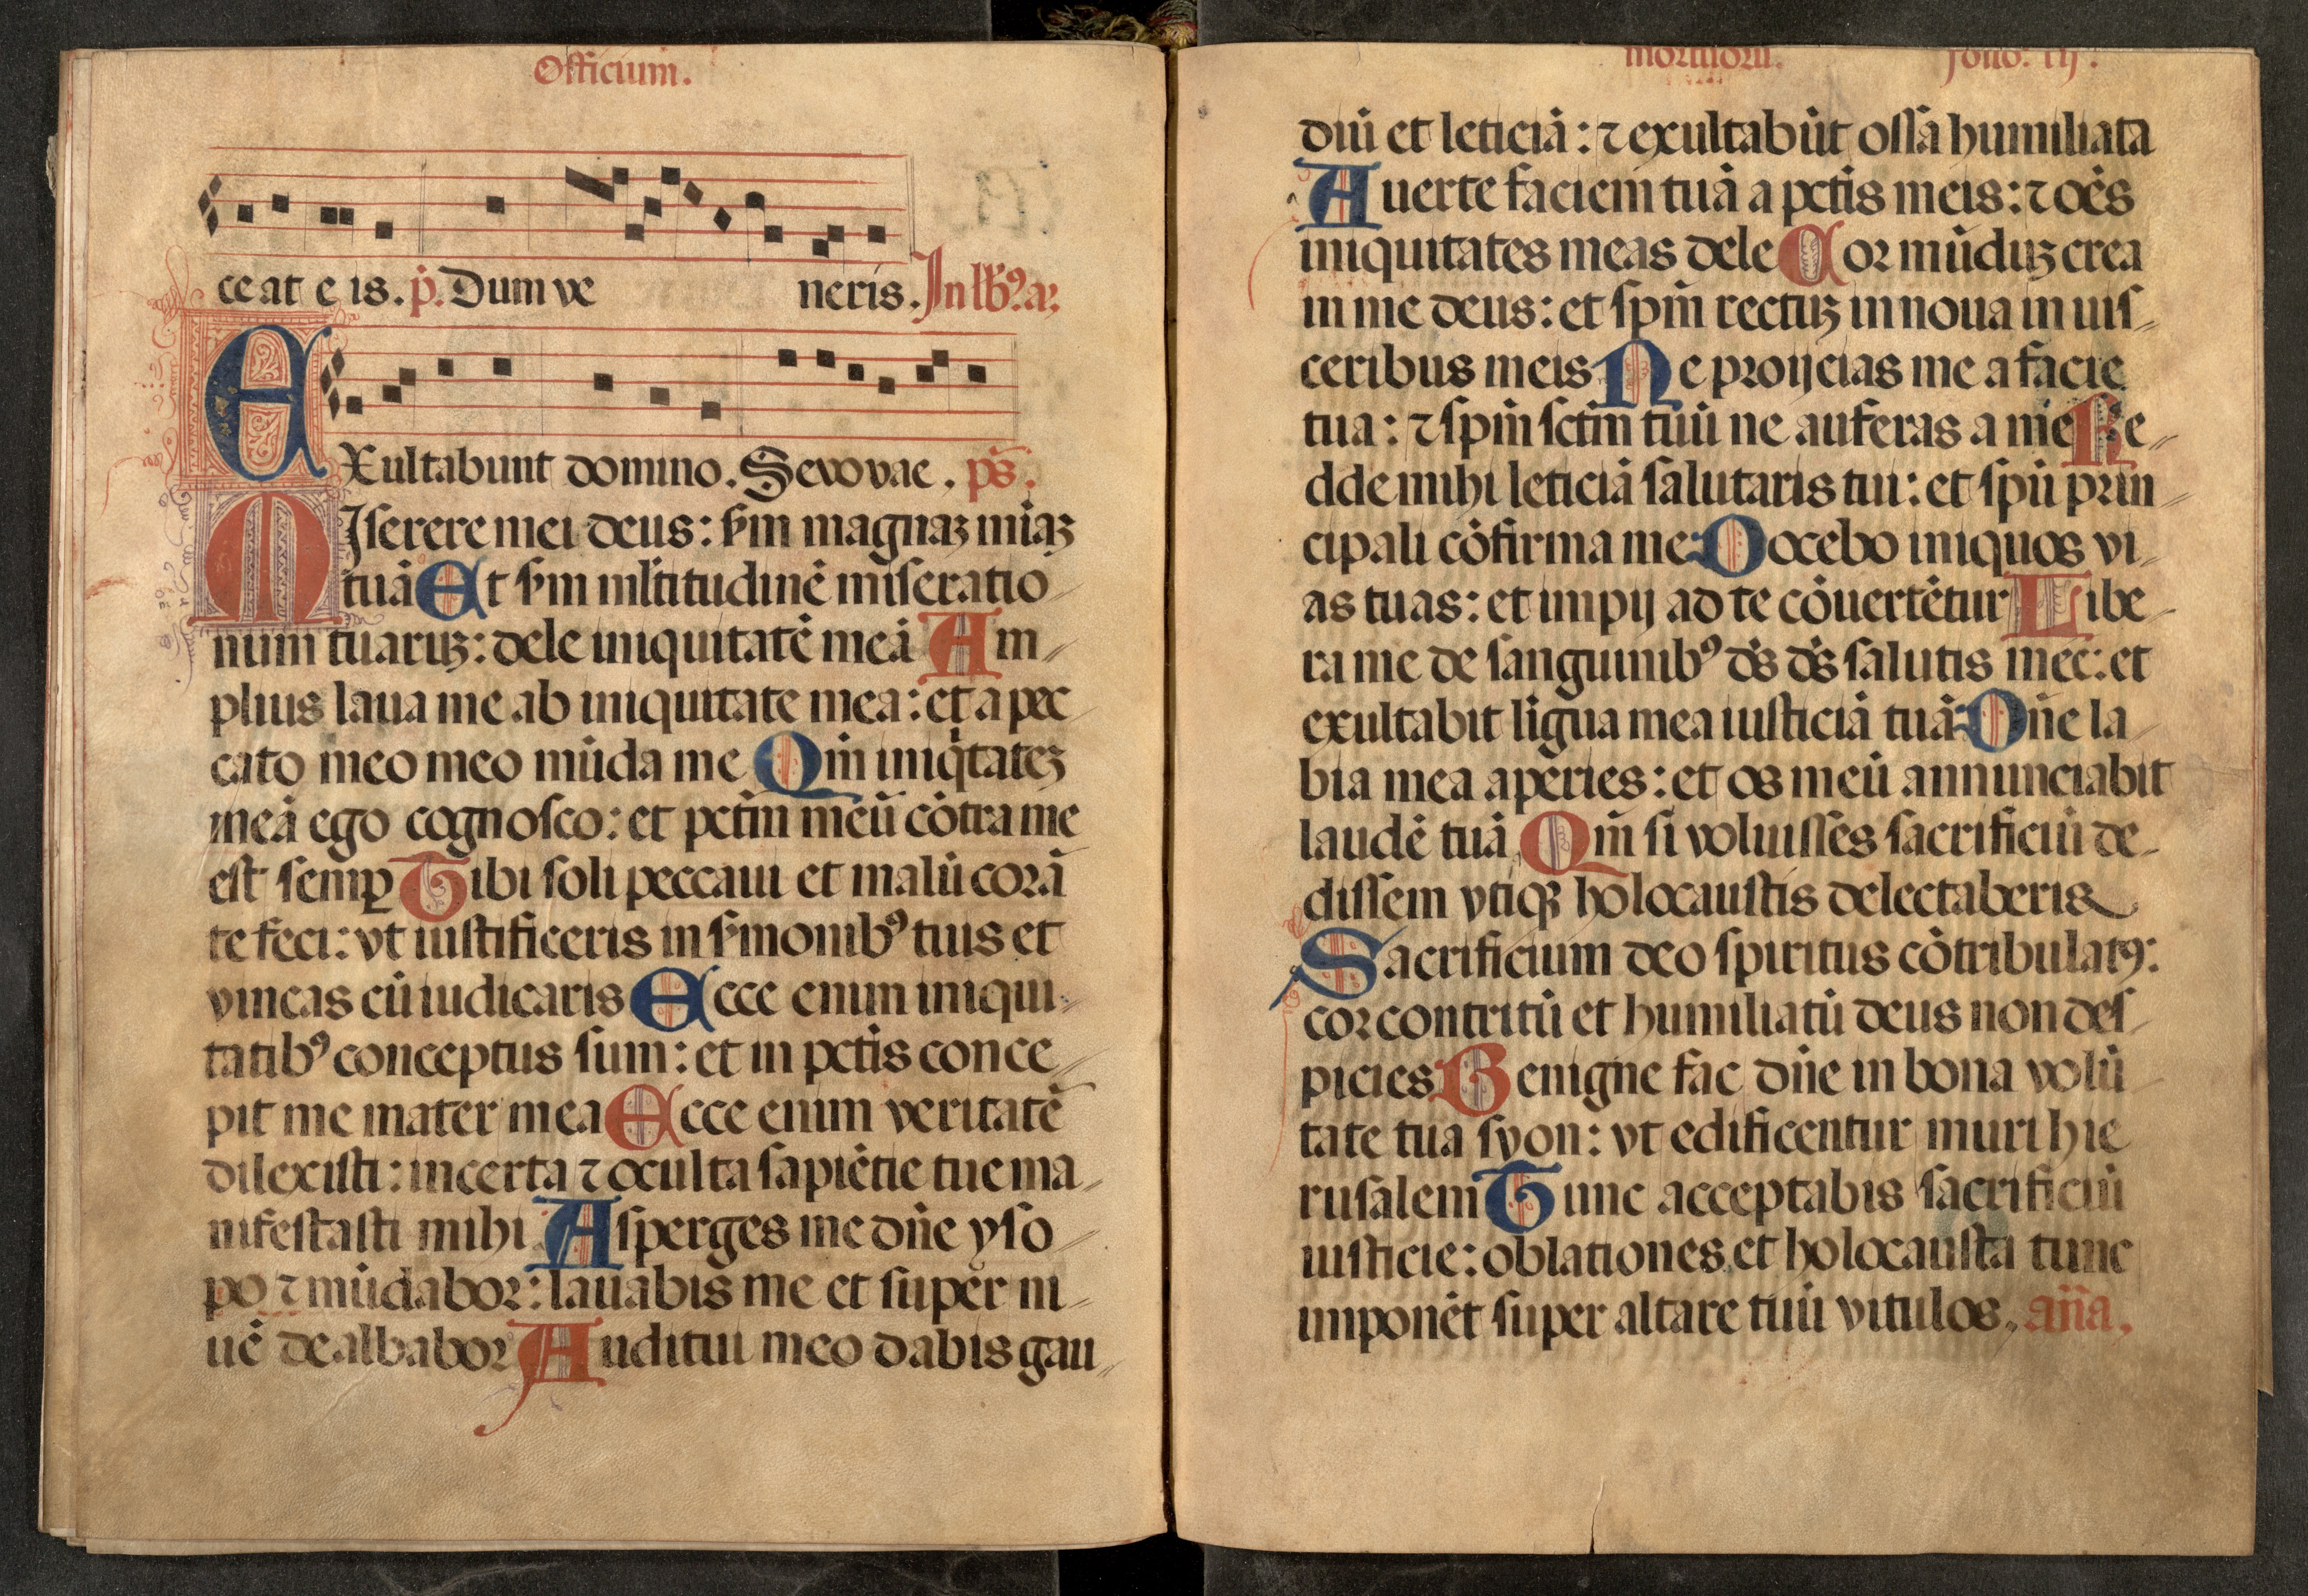 Officium.
ceat eis. p̄. Dum ve neris. In lb̃ꝰ. añ.
EXultabunt domino. Seuouae. ps̄.
MIserere mei deus: ẜm magnaꝫ miaꝫ
tuā Et ẜm ml̄titudinē miseratio
num tuaruꝫ: dele iniquitatē meā Am
plius laua me ab iniquitate mea: et a pec
cato meo meo mūda me Qm̄ iniqͥtateꝫ
meā ego cognosco: et pctm̄ meū cōtra me
est semꝑ Tibi soli peccaui et malū corā
te feci: vt iustificeris in ẜmonibꝰ tuis et
vincas cū iudicaris Ecce enim iniqui
tatibꝰ conceptus sum: et in pctīs conce
pit me mater mea Ecce enim veritatē
dilexisti: incerta ⁊ oculta sapiētie tue ma
nifestasti mihi Asperges me dn̄e yso
po ⁊ mūdabor: lauabis me et super ni
uē dealbabor Auditui meo dabis gau
mortuorū. folio. iij.
diū et leticiā: ⁊ exultabūt ossa humiliata
Auerte faciem tuā a pctīs meis: ⁊ oēs
iniquitates meas dele Cor mūduꝫ crea
in me deus: et spm̄ rectuꝫ innoua in uis
ceribus meis Ne proijcias me a facie
tua: ⁊ spm̄ sctm̄ tuū ne auferas a me Re
dde mihi leticiā salutaris tui: et spū prin
cipali cōfirma me Docebo iniquos vi
as tuas: et impij ad te cōuertētur Libe
ra me de sanguinibꝰ ds̄ ds̄ salutis mee: et
exultabit līgua mea iusticiā tuā Dn̄e la
bia mea aperies: et os meū annunciabit
laudē tuā Qm̄ si voluisses sacrificiū de
dissem vtiqꝫ holocaustis delectaberis
Sacrificium deo spiritus cōtribulatꝰ:
cor contritū et humiliatū deus non des
picies Benigne fac dn̄e in bona volū
tate tua syon: vt edificentur muri hie
rusalem Tunc acceptabis sacrificiū
iusticie: oblationes et holocausta tunc
imponēt super altare tuū vitulos. an̄a.